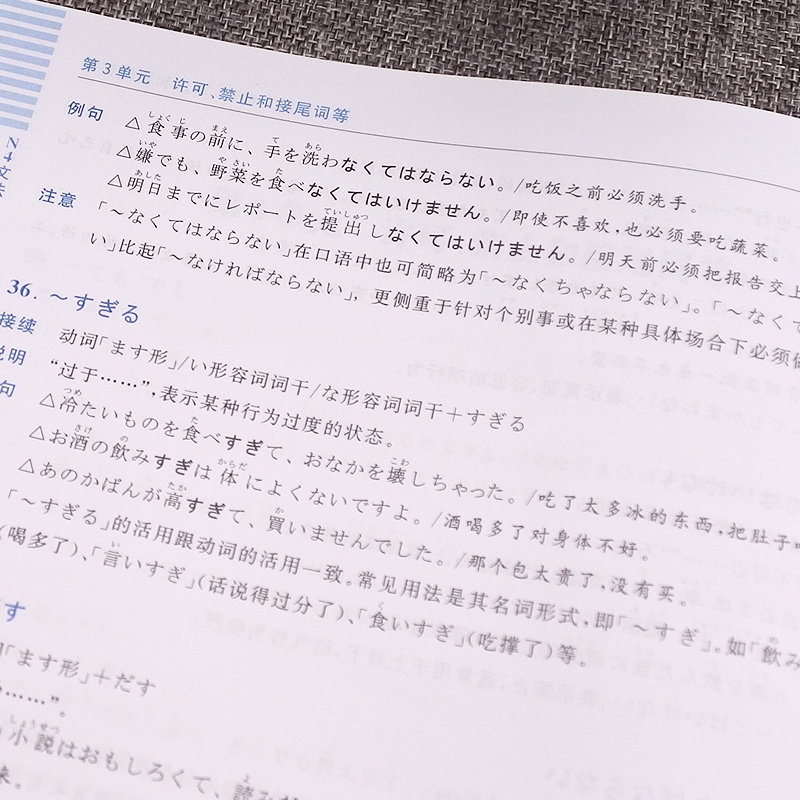 第3单元 许可、禁止和接尾词等
N4文法
例句 △食事の前に、手を洗わなくてはならない。/吃饭之前必须洗手。
△嫌でも、野菜を食べなくてはいけません。/即使不喜欢,也必须要吃蔬菜。
△明日までにレポートを提出しなくてはいけません。/明天前必须把报告交上
注意 「～なくてはならない」在口语中也可简略为「～なくちゃならない」。「～なくて
い」比起「～なければならない」,更侧重于针对个别事或在某种具体场合下必须做
36. ～すぎる
接续 动词「ます形」/い形容词词干/な形容词词干＋すぎる
说明 “过于……”,表示某种行为过度的状态。
句 △冷たいものを食べすぎて、おなかを壊しちゃった。/吃了太多冰的东西,把肚子
△お酒の飲みすぎは体によくないですよ。/酒喝多了对身体不好。
△あのかばんが高すぎて、買いませんでした。/那个包太贵了,没有买。
「～すぎる」的活用跟动词的活用一致。常见用法是其名词形式,即「～すぎ」。如「飲み
(喝多了)、「言いすぎ」(话说得过分了)、「食いすぎ」(吃撑了)等。
す
「ます形」＋だす
……”。
小説はおもしろくて、読み
来。